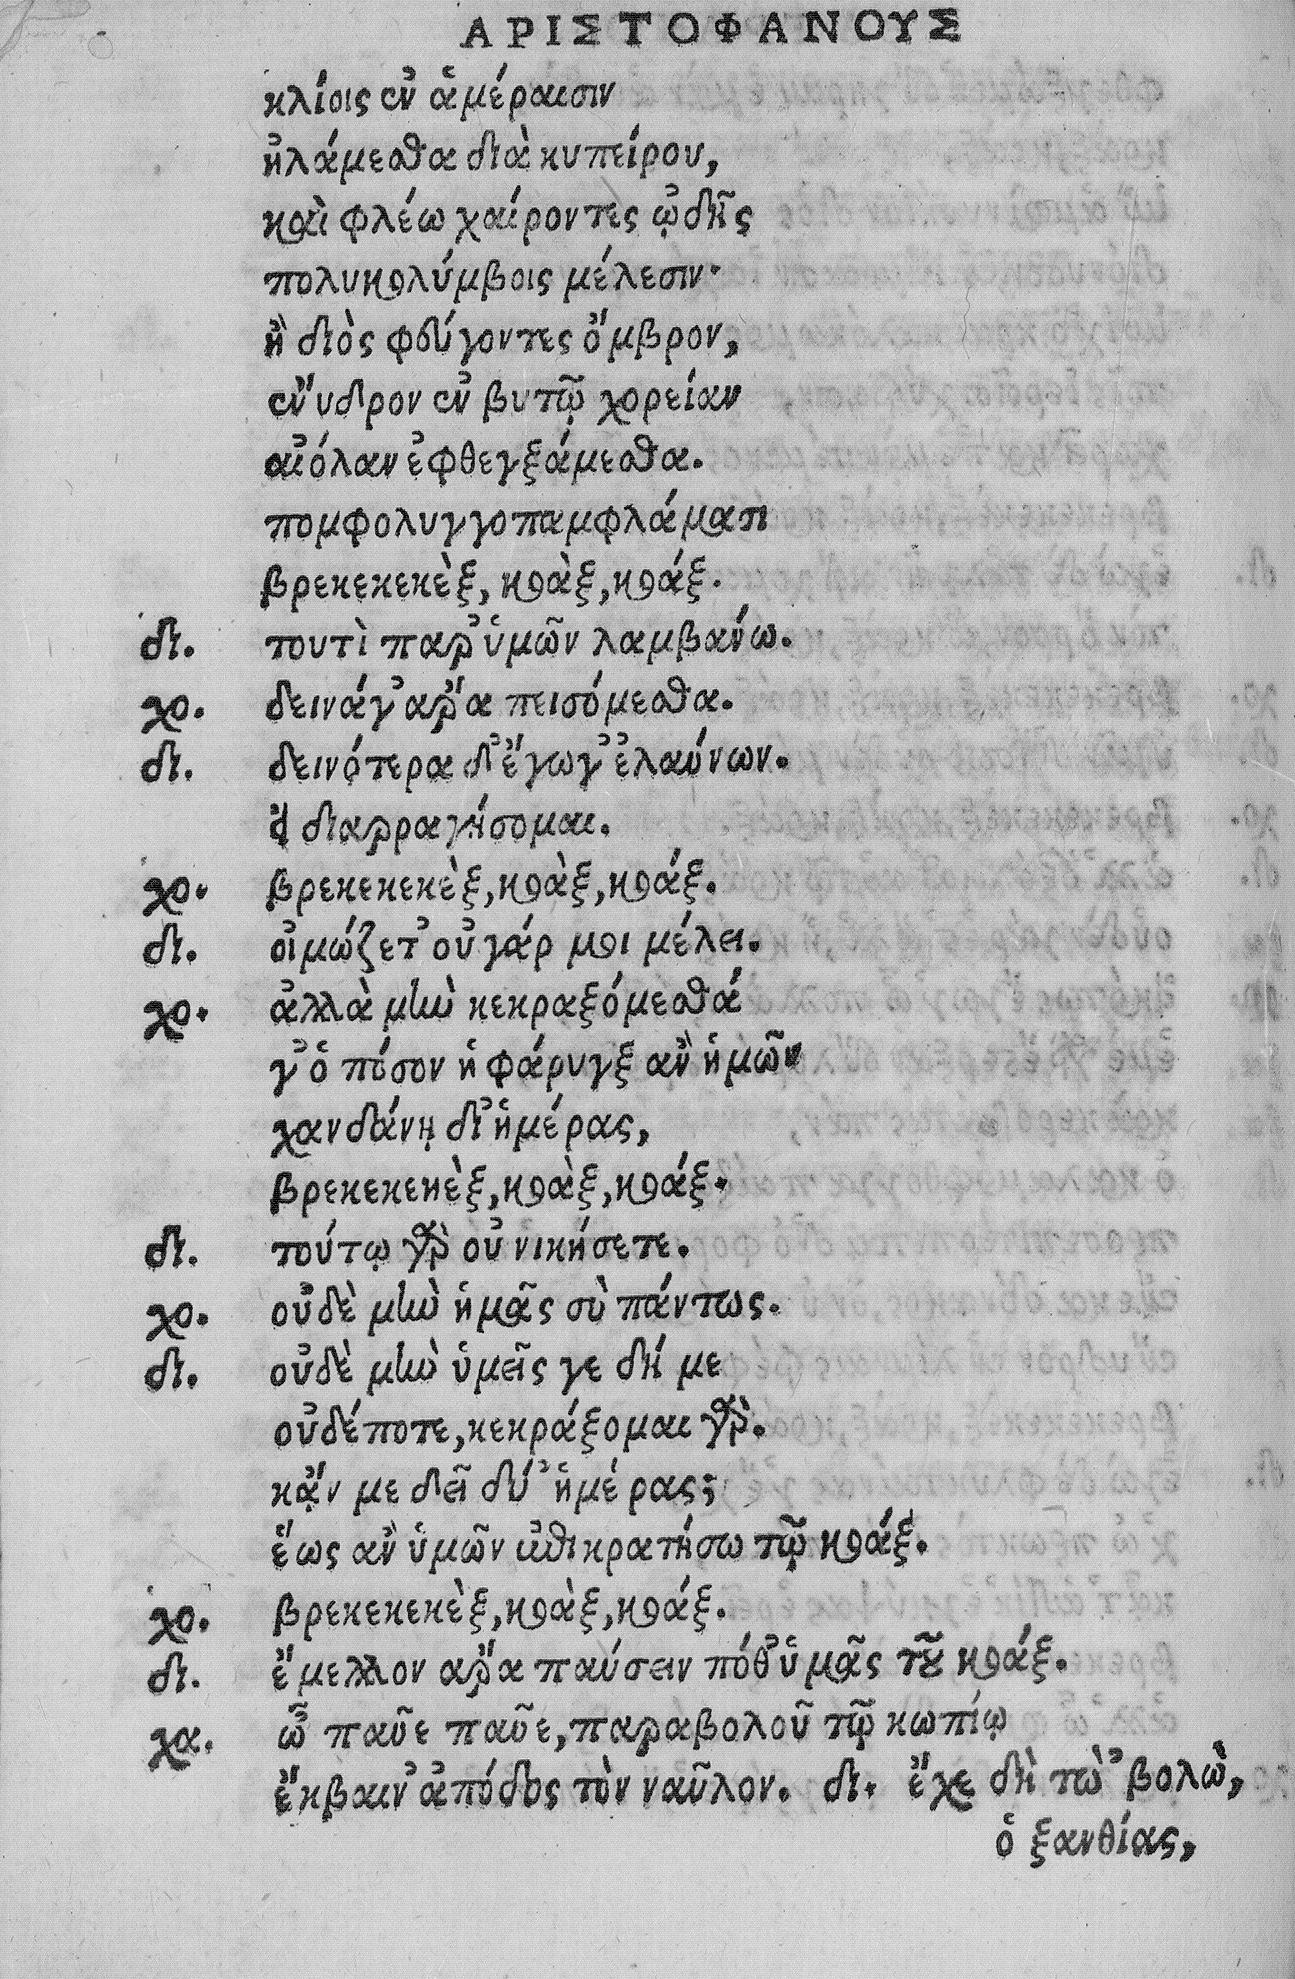 ΑΡΙΣΤΟΦΑΝΟΥΣ
κλίοις ἐν ἁμέραισιν
ἡλάμεσθα διὰ κυπείρου,
καὶ φλέω χαίροντες ᾠδῆς
πολυκολύμβοις μέλεσιν·
ἢ διὸς φεύγοντες ὄμβρον,
ἔνυδρον ἐν βυτῷ χορείαν
αἰόλαν ἐφθεγξάμεσθα.
πομφολυγγοπαμφλάματι
βρεκεκεκὲξ, κοὰξ, κοάξ.
δι. τουτὶ παρ' ὑμῶν λαμβανώ.
χο. δεινά γ' ἄρα πεισόμεσθα.
δι. δεινότερα δ' ἔγωγ' ἐλαύνων.
εἰ διαρραγήσομαι.
χο. βρεκεκεκὲξ, κοὰξ, κοάξ.
δι. οἰμώζετ' οὐ γάρ μοι μέλει.
χο. ἀλλὰ μὴν κεκραξόμεσθά
γ' ὁ πόσον ἡ φάρυγξ ἂν ἡμῶν
χανδάνῃ δι' ἡμέρας,
βρεκεκεκὲξ, κοὰξ, κοάξ.
δι. τούτῳ γὰρ οὐ νικήσετε.
χο. οὐδὲ μὴν ἡμᾶς σὺ πάντως.
δι. οὐδὲ μὴν ὑμεῖς γε δή με
οὐδέποτε, κεκράξομαι γὰρ.
κᾄν με δεῖ δι' ἡμέρας;
ἕως ἂν ὑμῶν ἐπικρατήσω τῷ κοάξ.
χο. βρεκεκεκὲξ, κοὰξ, κοάξ.
δι. ἔμελλον ἄρα παύσειν πόθ' ὑμᾶς τοῦ κοάξ.
χα. ὦ παῦε παῦε, παραβολοῦ τῷ κωπίῳ
ἔκβαιν' ἀπόδος τὸν ναῦλον. δι. ἔχε δὴ τὼ 'βολὼ,
ὁ ξανθίας,